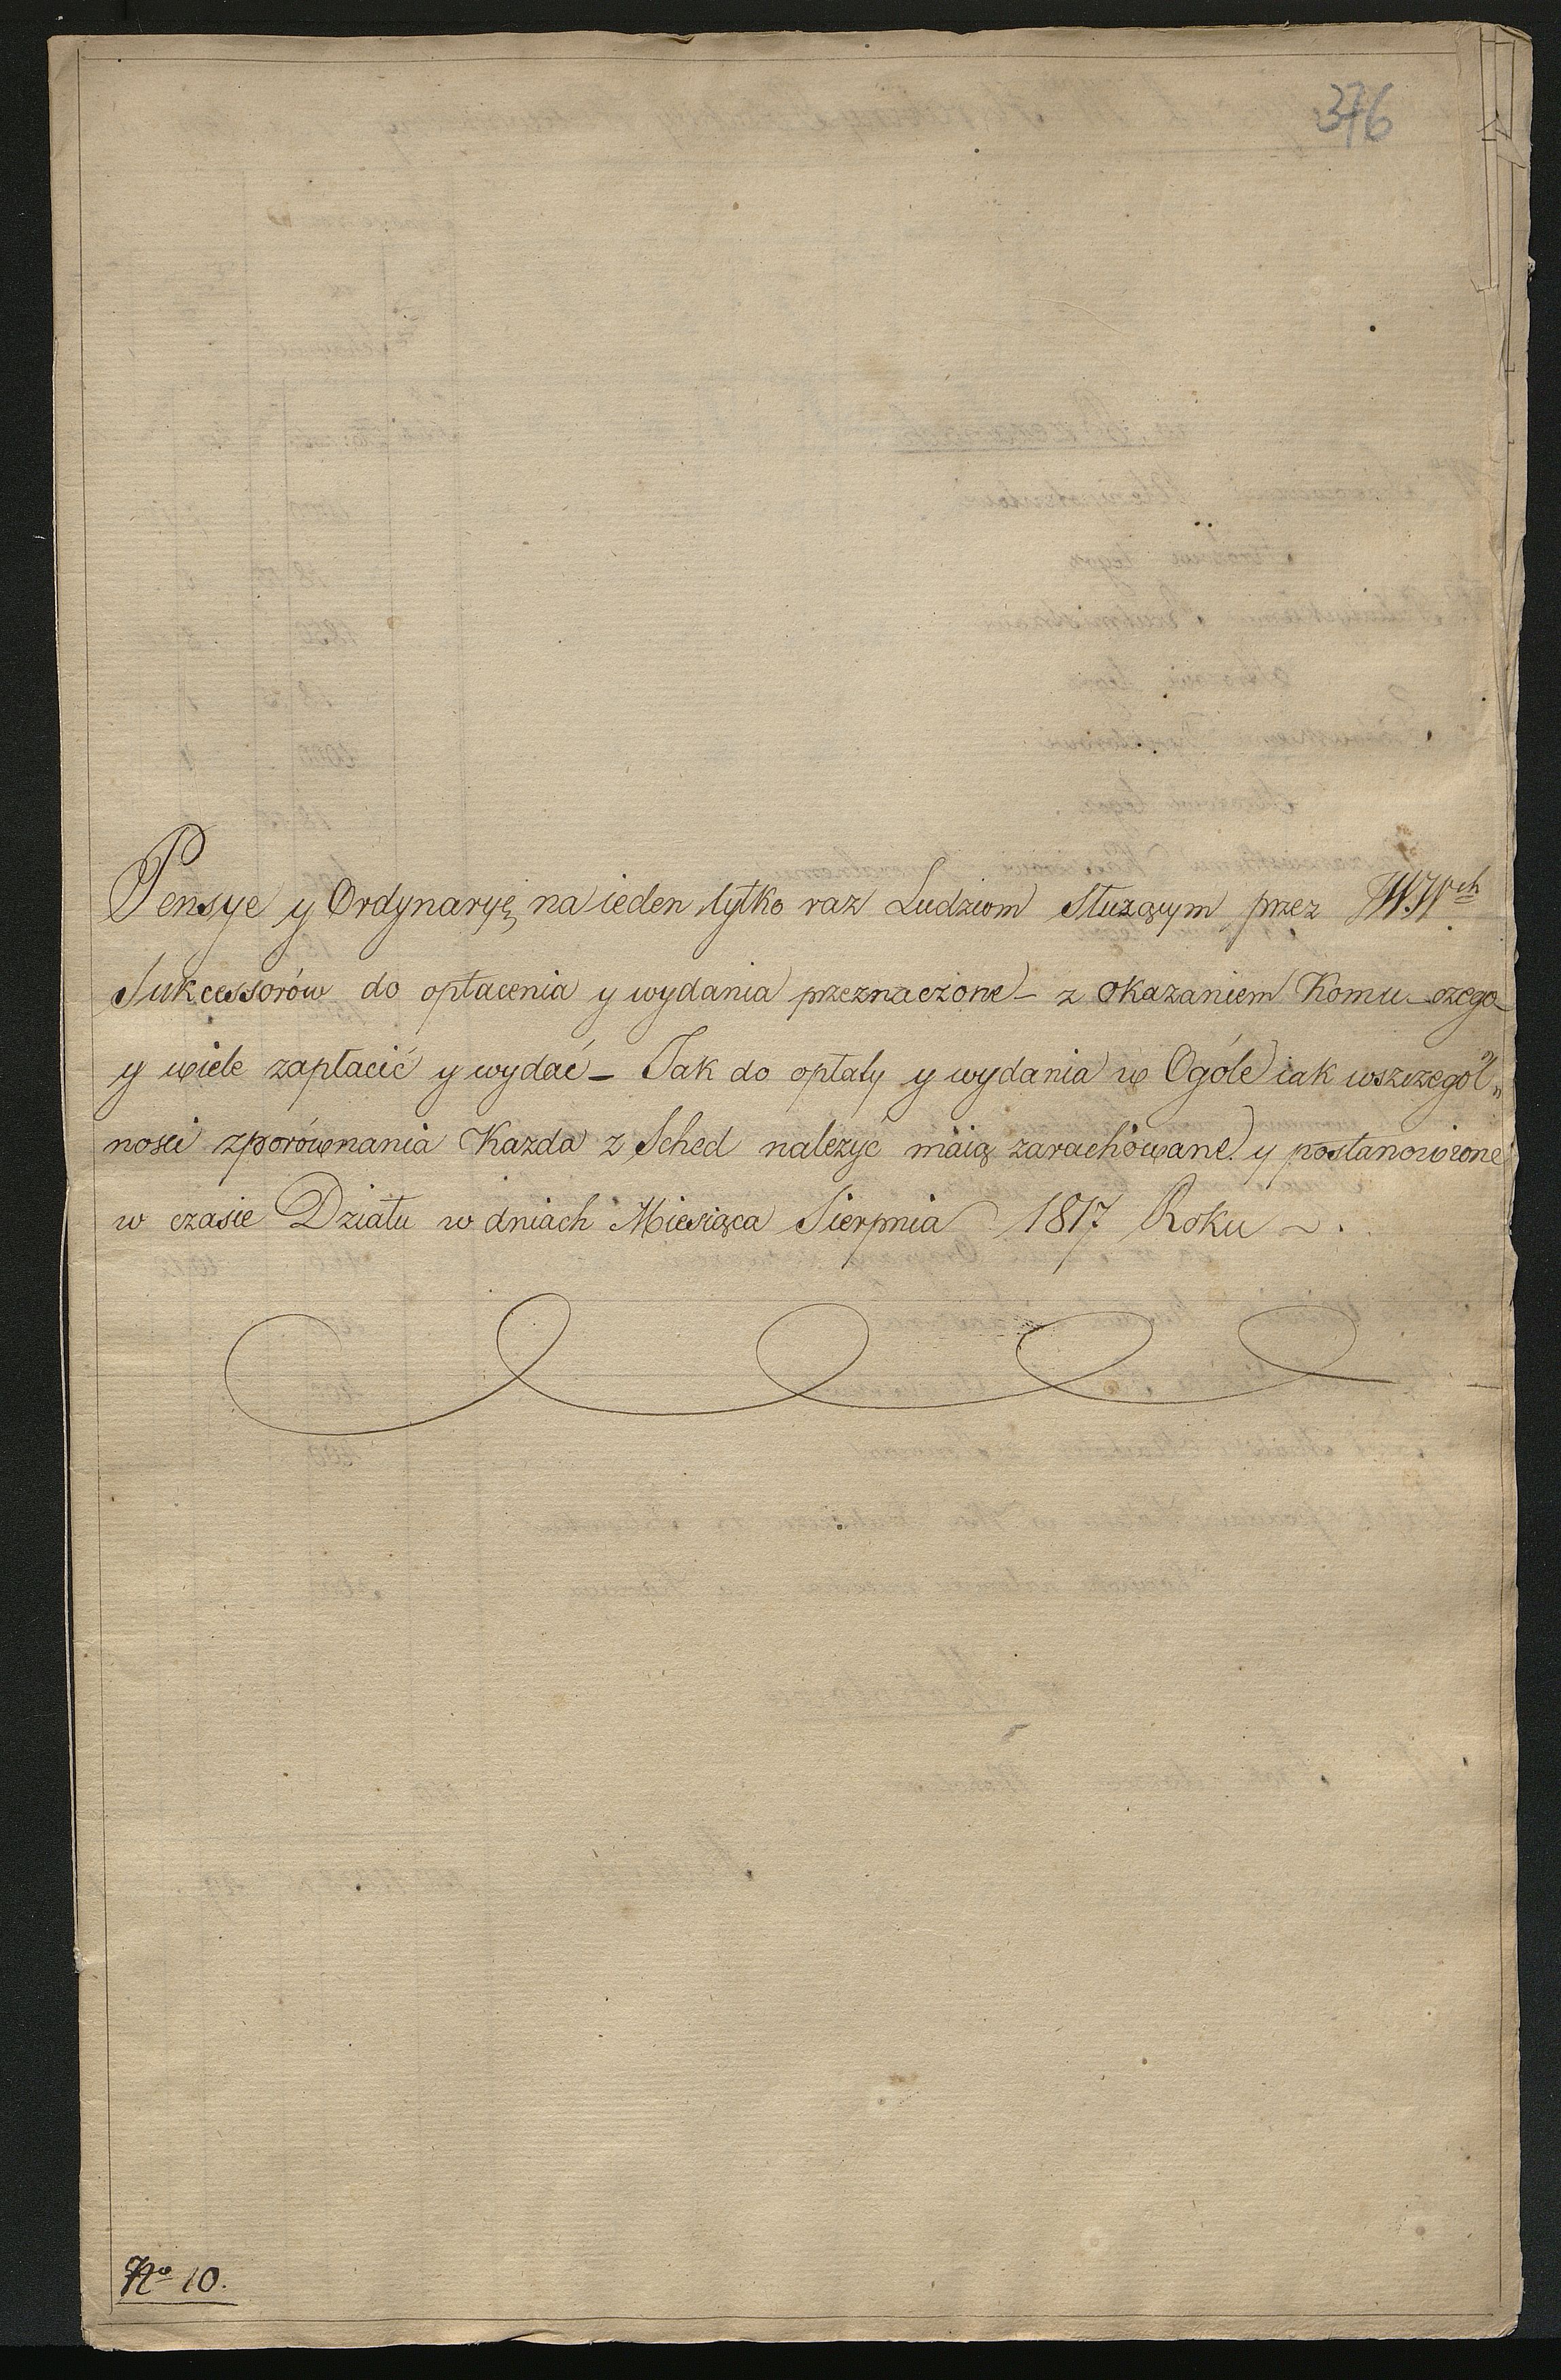 376
Pensye y Ordynaryę na ieden tylko raz Ludziom Służącym przez JW.Wch
Sukcessorów do opłacenia y wydania przeznaczone – z okazaniem Komu – czego
y wiele zapłacić y wydać – Jak do opłaty y wydania w Ogóle iak wszczegól„
ności zporównania Kazda z Sched nalezyć maią zarachowane y postanowione
w czasie Działu w dniach Miesiąca Sierpnia 1817 Roku ~.
No 10.